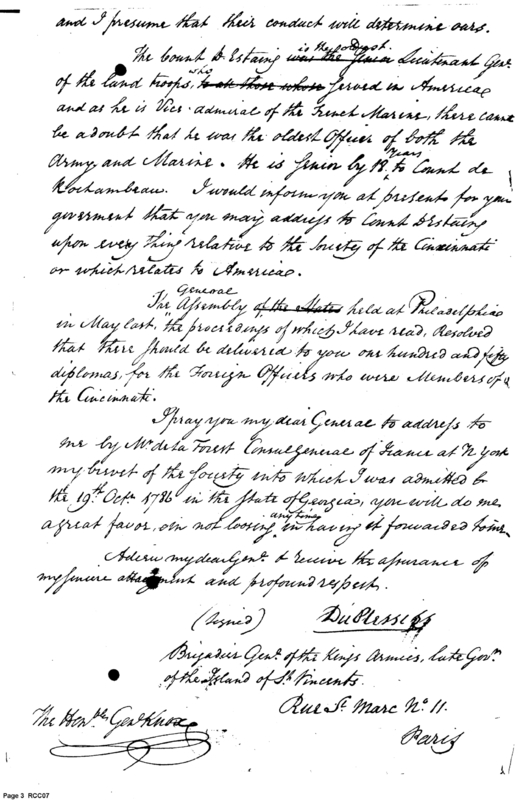 and I presume that their conduct will determine ours.
The Count D Estaing was the Senior is the oldest Lieutenant Genl.
of the land troops, to all those whose who served in America
and as he is Vice-admiral of the French Marine, there cannot
be a doubt that he was the oldest Officer of both the
Army and Marine. He is Senior by 18 Years to Count de
Rochambeau. I would inform you at presents for your
goverment that you may address to Count D Estaing
upon every thing relative to the Society of the Cincinnati
or which relates to America.
The General Assembly of the States held at Philadelphia
in May last, the proceedings of which I have read, Resolved
that there should be delivered to you one hundred and fifty
diplomas, for the Foreign Officers who were Members of
the Cincinnate.
I pray you my dear General to address to
me by Mr de la Forest Consul General of France at N York
my brevet of the Society into which I was admitted
the 19th Octr. 1786 in the State of Georgia, you will do me
a great favor, in not loosing any time in having it forwarded to me.
Adieu my dear Genl. & receive the assurance of
my sincere attachment and profound respect.
(signed) Du Plessis
Brigadier Genl. of the Kings Armies, late Govr.
of the Island of St. Vincents.
Rue St. Marc No. 11.
The Honble Genl Knox
Paris
Page 3 RCC07